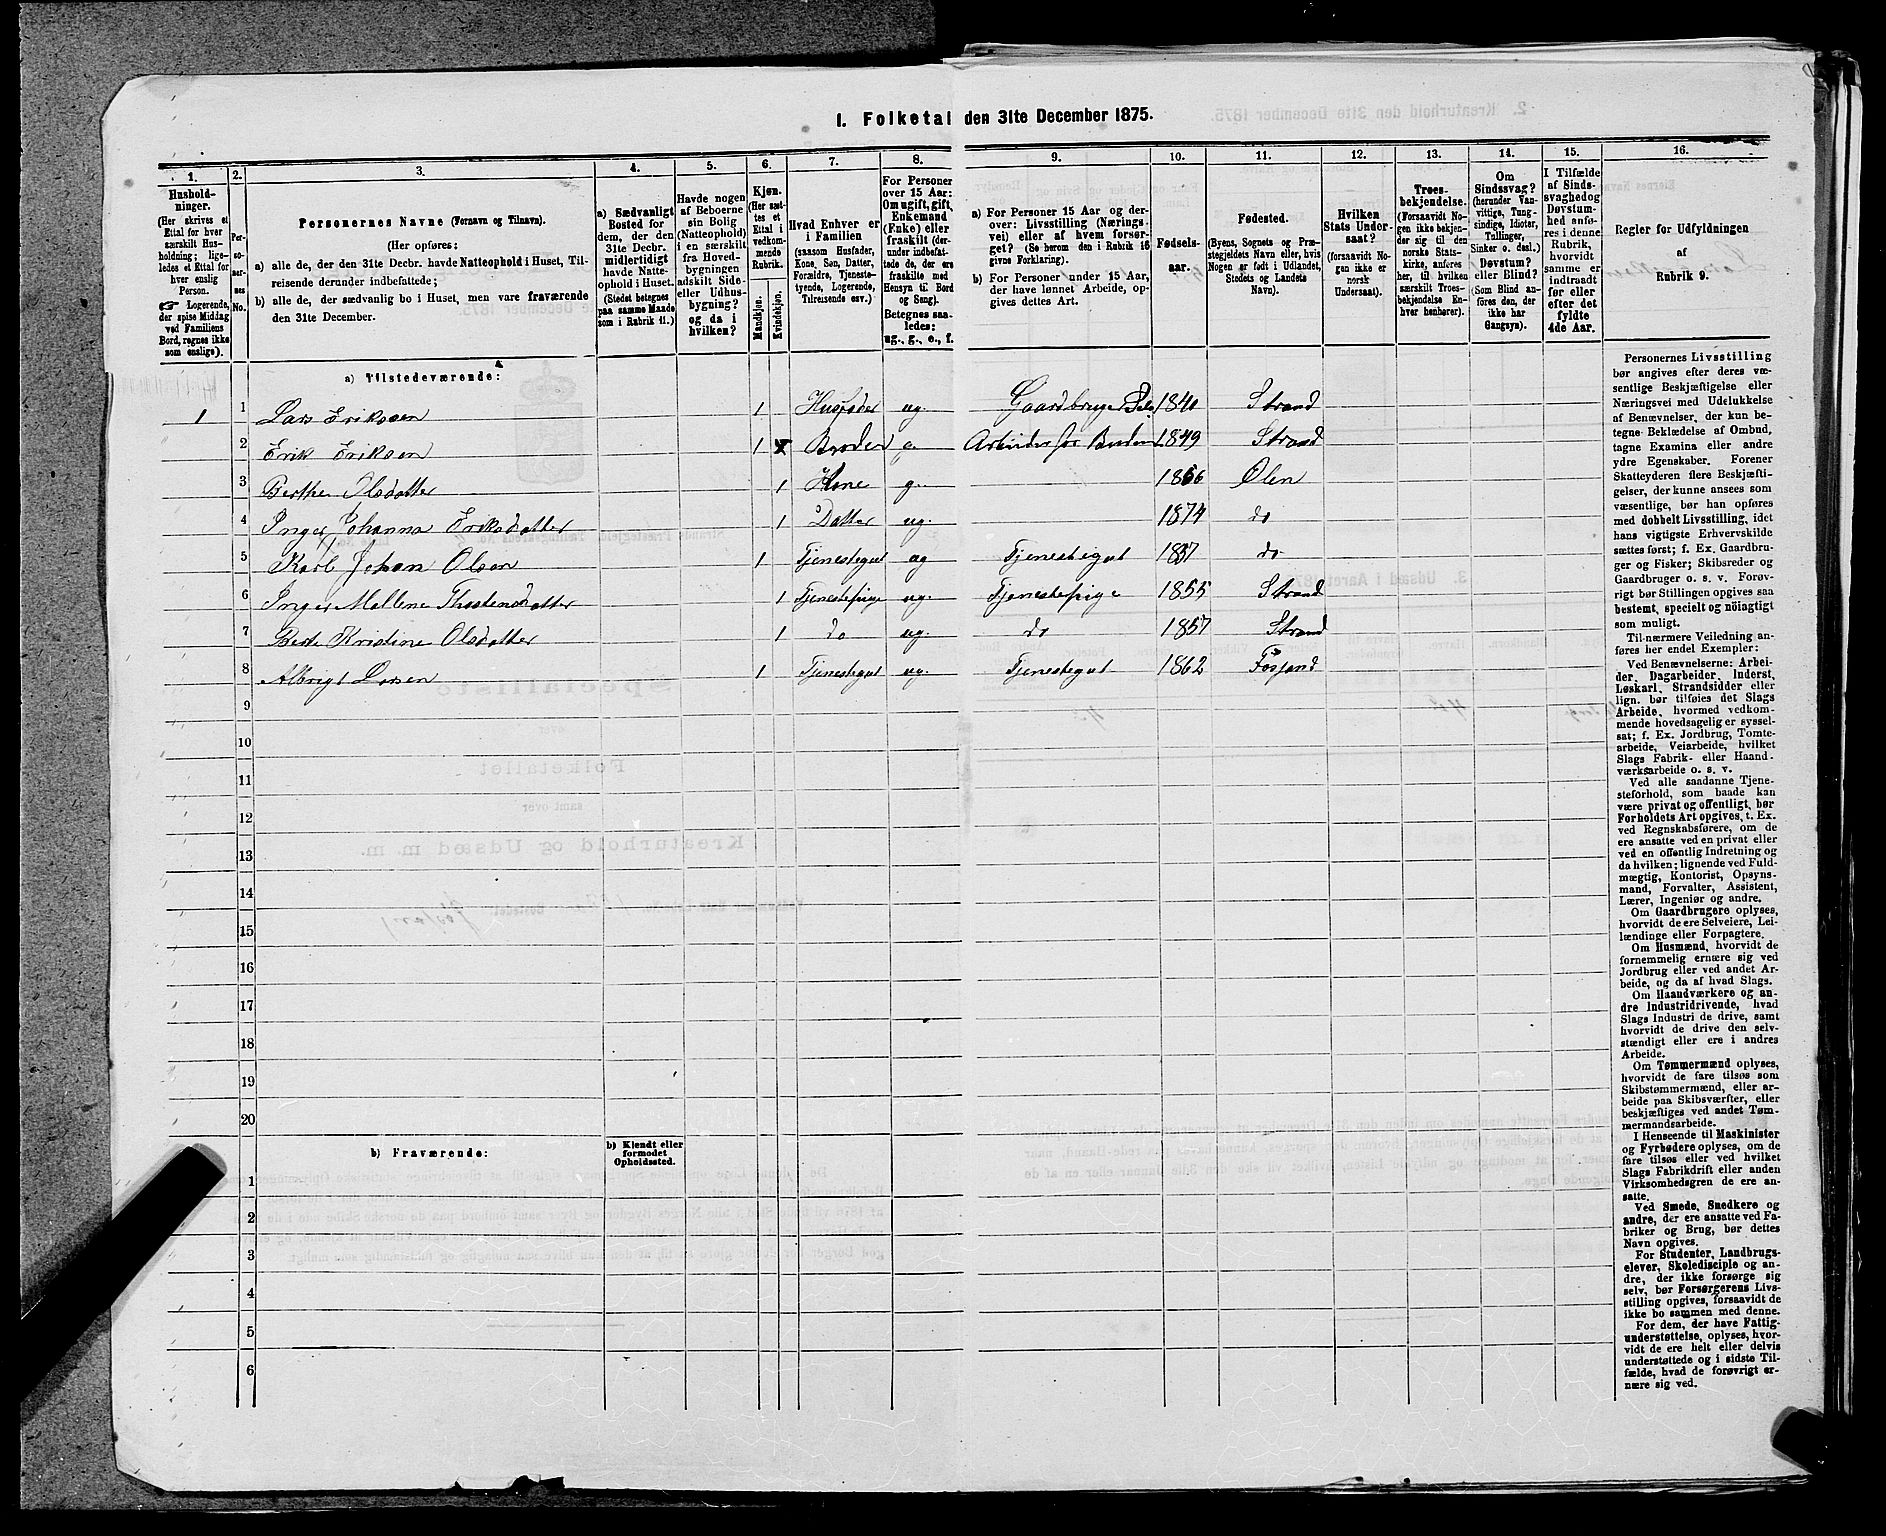 I. Folketal den 31te December 1875.
1. 2. 3. 4. 5. 6. 7. 8. 9. 10. 11. 12. 13. 14. 15. 16.
Hushold-
ninger.
(Her skrives et
Ettal for hver
særskilt Hus-
holdning; lige-
ledes et Ettal for
hver enslig
Person.
Logerende,
der spise Middag
ved Familiens
Bord, regnes ikke
som enslige).
Per-
so-
ner-
nes
No.
Personernes Navne (Fornavn og Tilnavn).
(Her opføres:
a) alle de, der den 31te Decbr. havde Natteophold i Huset, Til-
reisende derunder indbefattede;
b) alle de, der sædvanlig bo i Huset, men vare fraværende
den 31te December.
a) Sædvanligt
Bosted for
dem, der den
31te Decbr.
midlertidigt
havde Natte-
ophold i Huset.
(Stedet betegnes
paa samme Maade
som i Rubrik 11.)
Havde nogen
af Beboerne
sin Bolig
(Natteophold)
i en særskilt
fra Hoved-
bygningen
adskilt Side-
eller Udhus-
bygning?
og da i
hvilken?
Kjøn.
(Her sæt-
tes et
Ettal i
vedkom-
mende
Rubrik.
Mandkjøn.
Kvindekjøn.
Hvad Enhver er
i Familien
(saasom Husfader,
Kone, Søn, Datter,
Forældre, Tjeneste-
tyende, Logerende,
Tilreisende osv.)
For Personer
over 15 Aar:
Om ugift, gift,
Enkemand
(Enke) eller
fraskilt (der-
under indbefat-
tede de, der ere
fraskilte med
Hensyn til Bord
og Seng).
Betegnes saa-
ledes:
ug., g., e., f.
a) For Personer 15 Aar og der-
over: Livsstilling (Nærings-
vei) eller af hvem forsør-
get? (Se herom den i Rubrik 16
givne Forklaring).
b) For Personer under 15 Aar,
der have lønnet Arbeide, op-
gives dettes Art.
Fødsels-
aar.
Fødested.
(Byens, Sognets og Præ-
stegjeldets Navn eller, hvis
Nogen er født i Udlandet,
Stedets og Landets
Navn).
Hvilken
Stats Under-
saat?
(forsaavidt No-
gen ikke er
norsk
Undersaat).
Troes-
bekjendelse.
(Forsaavidt No-
gen ikke bekjen-
der sig til den
norske Stats-
kirke, anføres
her, til hvilken
særskilt Troes-
bekjendelse En-
hver henhører).
Om
Sindssvag?
(herunder Van-
vittige, Tung-
sindige, Idioter,
Tullinger,
Sinker o. desl.)
Døvstum?
eller Blind?
(Som Blind an-
føres den, der
ikke har
Gangsyn).
I Tilfælde
af Sinds-
svaghed og
Døvstum-
hed anfø-
res i denne
Rubrik,
hvorvidt
samme er
indtraadt
før eller
efter det
fyldte
4de Aar.
Regler for Udfyldningen
af
Rubrik 9.
a) Tilstedeværende:
1 1 Lars Eriksen 1 Husfader ug. Gaardbruger Selv 1840 Strand
2 Erik Eriksen 1 Broder g. Arbeider for Broderen 1849 Strand
3 Berthe Olsdatter 1 Kone g. Ølen
4 Inger Johanna Eriksdatter 1 Datter ug. 1874 do
5 Karl Johan Olsen 1 Tjenestegut ug Tjenestegut 1857 do
6 Inger Mallene Thostensdatter 1 Tjenestepige ug. Tjenestepige 1855 Strand
7 Berte Kristine Olsdatter 1 do ug. do 1857 Strand
8 Albrigt 1 Tjenestegut ug. Tjenestegut 1862
9
10
11
12
13
14
15
16
17
18
19
20
b) Fraværende:
b) Kjendt eller
formodet
Opholdssted.
1
2
3
4
5
6
Personernes Livsstilling
bør angives efter deres væ-
sentlige Beskjæftigelse eller
Næringsvei med Udelukkelse
af Benævnelser, der kun be-
tegne Beklædelse af Ombud,
tagne Examina eller andre
ydre Egenskaber. Forener
Skatteyderen flere Beskjæfti-
gelser, der kunne ansees som
væsentlige, bør han opføres
med dobbelt Livsstilling, idet
hans vigtigste Erhvervskilde
sættes først; f. Ex. Gaardbru-
ger og Fisker; Skibsreder og
Gaardbruger o. s. v. Forøv-
rigt bør Stillingen opgives saa
bestemt, specielt og nöiagtigt
som muligt.
Til nærmere Veiledning an-
føres her endel Exempler:
Ved Benævnelserne: Arbei-
der, Dagarbeider, Inderst,
Løskarl, Strandsidder eller
lign. bør tilføies det Slags
Arbeide, hvormed vedkom-
mende hovedsagelig er syssel-
sat; f. Ex. Jordbrug, Tomte-
arbeide, Veiarbeide, hvilket
Slags Fabrik- eller Haand-
værksarbeide o. s. v.
Ved alle saadanne Tjene-
steforhold, som baade kan
være privat og offentligt, bør
Forholdets Art opgives, t. Ex.
ved Regnskabsførere, om de
ere ansatte ved en privat eller
ved en offentlig Indretning og
da hvilken; lignende ved Fuld-
mægtig, Kontorist, Opsyns-
mand, Forvalter, Assistent,
Lærer, Ingeniør og andre.
Om Gaardbrugere oplyses,
hvorvidt de ere Selveiere, Lei-
lændinge eller Forpagtere.
Om Husmænd, hvorvidt de
fornemmelig ernære sig ved
Jordbrug eller ved andet Ar-
beide, og da af hvad Slags.
Om Haandværkere og an-
dre Industridrivende, hvad
Slags Industri de drive, samt
hvorvidt de drive den selv-
stændigt eller ere i andres
Arbeide.
Om Tømmermænd oplyses,
hvorvidt de fare tilsøs som
Skibstømmermænd, eller ar-
beide paa Skibsværfter, eller
beskjæftiges ved andet Tøm-
mermandsarbeide.
I Henseende til Maskinister
og Fyrbødere oplyses, om de
fare tilsøs eller ved hvilket
Slags Fabrikdrift eller anden
Virksomhedsgren de ere an-
satte.
Ved Smede, Snedkere og
andre, der ere ansatte ved Fa-
briker og Brug, bør dettes
Navn opgives.
For Studenter, Landbrugs-
elever, Skoledisciple og an-
dre, der ikke forsørge sig
selv, bør Forsørgerens Livs-
stilling opgives, forsaavidt de
ikke bo sammen med denne.
For dem, der have Fattig-
understøttelse, oplyses, hvor-
vidt de ere helt eller delvis
understøttede og i sidste Til-
fælde, hvad de forøvrigt er-
nære sig ved.